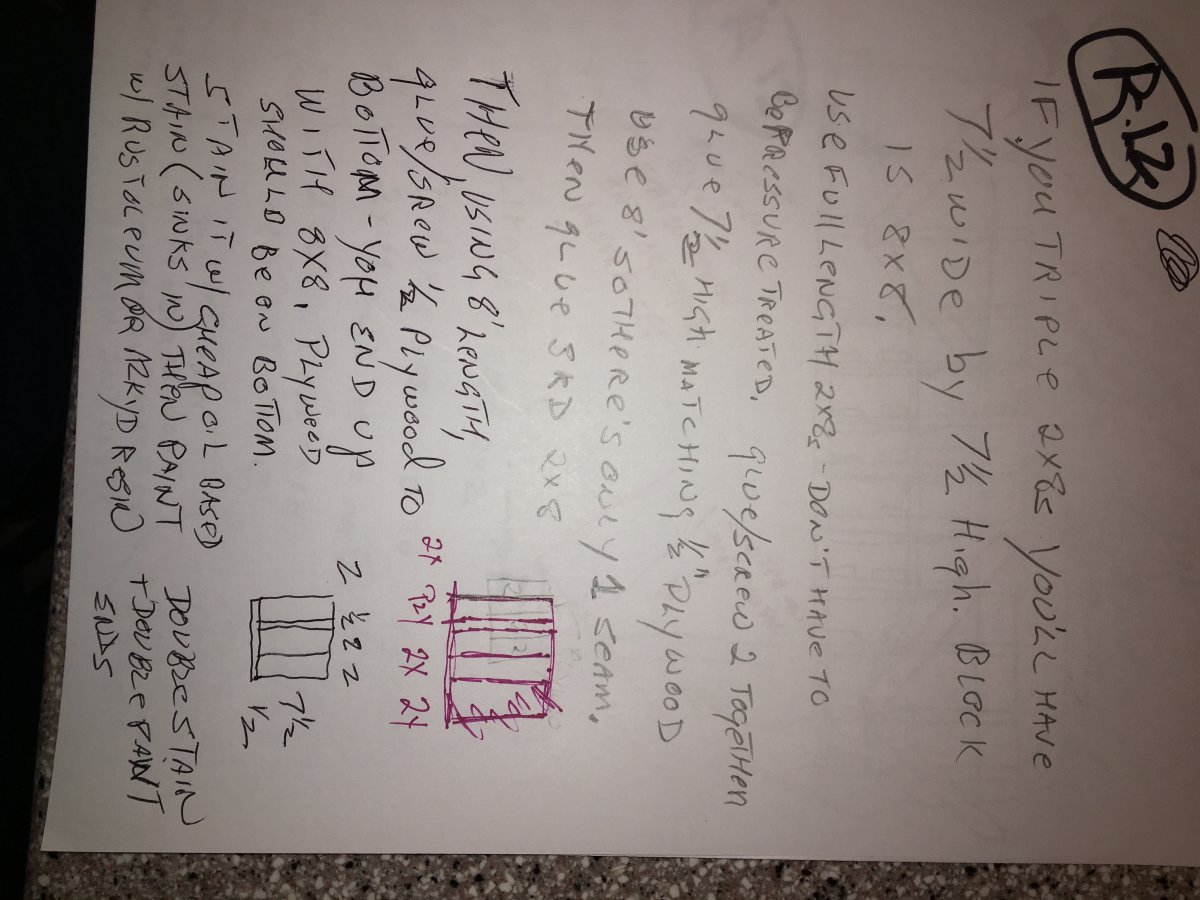 IF YOU TRIPLE 2X8s YOU'LL HAVE
7½ WIDE by 7½ High. BLOCK
IS 8X8.
USE FULL LENGTH 2X8s - DON'T HAVE TO
BE PRESSURE TREATED. GLUE/SCREW 2 TOGETHER
GLUE 7½ HIGH MATCHING ½" PLYWOOD
USE 8' SO THERE'S ONLY 1 SEAM.
THEN GLUE 3RD 2X8
THEN, USING 8' LENGTH,
GLUE/SREW ½ PLYWOOD TO
BOTTOM - YOU END UP
WITH 8X8, PLYWOOD
SHOULD BE ON BOTTOM.
STAIN IT W/ CHEAP OIL BASED
STAIN (SINKS IN) THEN PAINT
W/ RUSTOLEUM OR ALKYD RESIN
2X 2X 2X
2 ½ 2 2
7½
½
DOUBLE STAIN
+ DOUBLE PAINT
ENDS